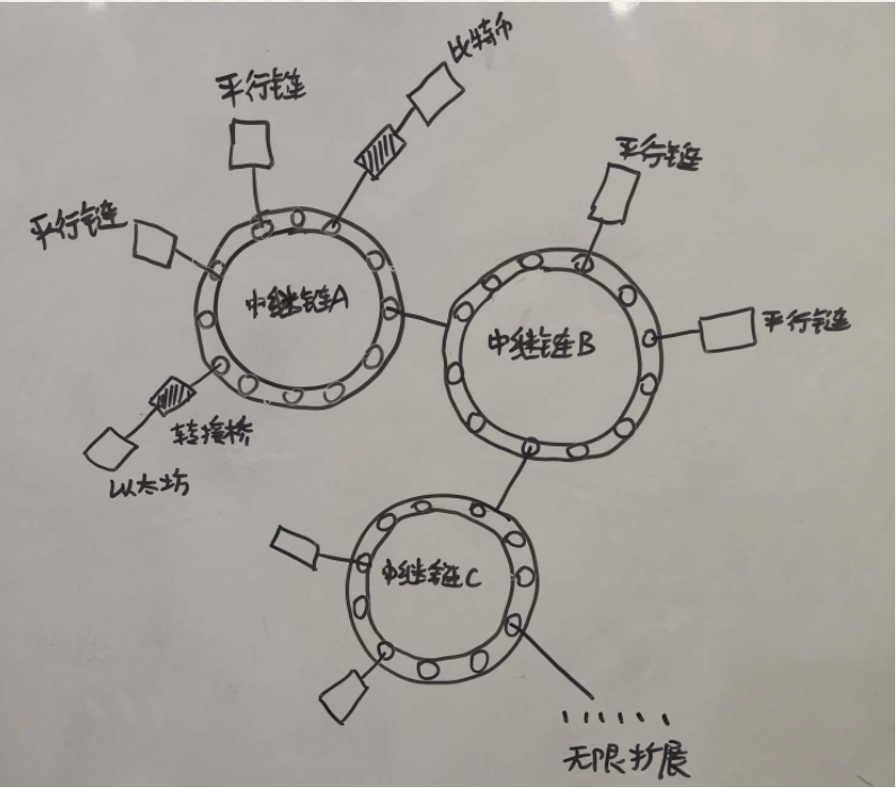 比特币
平行链
平行链
平行链
中继链A
中继链B
平行链
转接桥
以太坊
中继链C
无限扩展